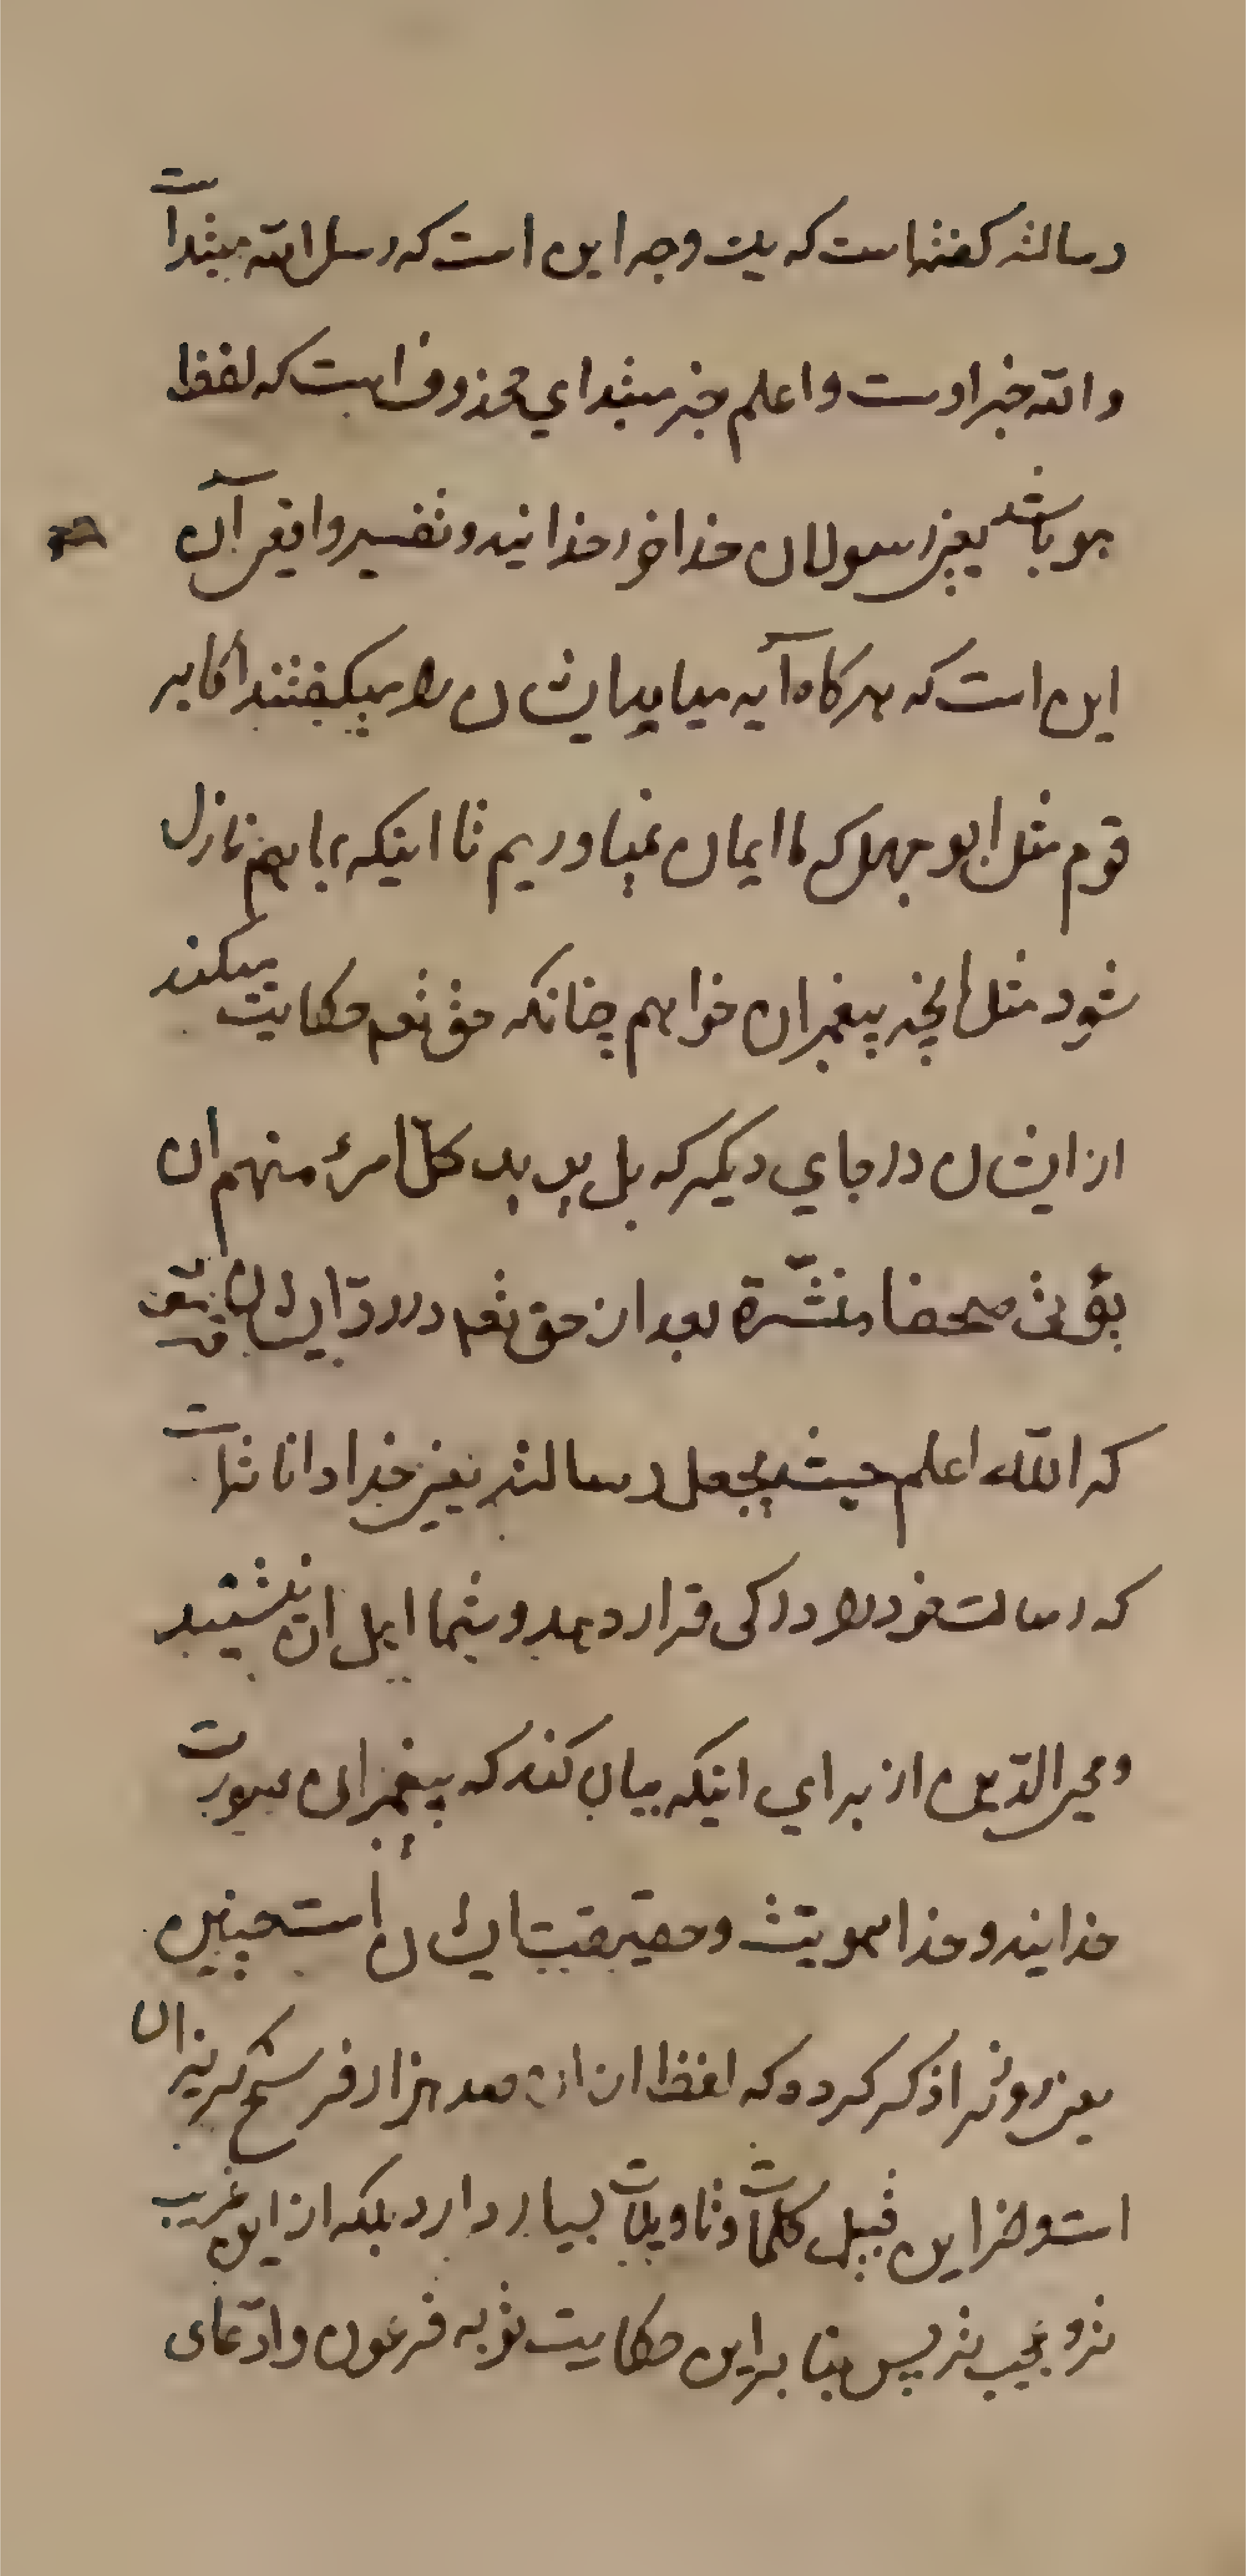 رسالته گفته است که یک وجه این است که رسل الله مبتدا است
و الله خبر اوست و اعلم خبر مبتدای محذوف است که لفظ
هو باشد یعنی رسولان خدا خود خدایند و تفسیر واقعی آن
این است که هرکاه آیه میامد ایشان را میگفتند اکابر
قوم مثل ابو جهل که ما ایمان نمیاوریم تا اینکه بما هم نازل
شود مثل آنچه پیغمبران خواهم چنانکه حق تعم حکایت میکند
از ایشان در جای دیگر که بل یرید کلّ امرئ منهم ان
یؤتی صحفا منشّرة بعد از حق تعم در ردّ ایشان
که الله اعلم حیث یجعل رسالته یعنی خدا داناتر است
که رسالت خود را در کی قرار دهد و شما اهل ان نیستید
و محیی الدّین از برای اینکه بیان کند که پیغمبران بصورت
خدایند و خدا هویتش و حقیقت ایشان است چنین
بعید و ترا ذکر کرده که لفظ از ان صد هزار فرسخ گریزان
است و از این قبیل کلمات و تاویلات بسیار دارد بلکه از این غریب
تر و عجیب تر پس بنا براین حکایت توبه فرعون و ادّعای